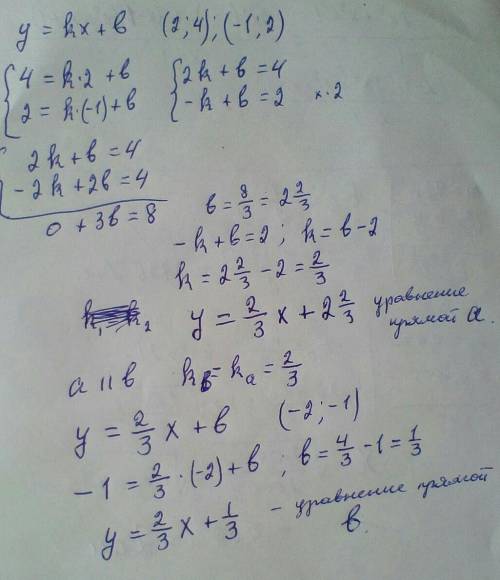 y = kx + b (2; 4); (-1; 2)
{ 4 = k·2 + b { 2k + b = 4
{ 2 = k·(-1) + b { -k + b = 2 × 2
{ 2k + b = 4
{ -2k + 2b = 4
0 + 3b = 8
b = 8/3 = 2 2/3
-k + b = 2; k = b - 2
k = 2 2/3 - 2 = 2/3
y = 2/3 x + 2 2/3 уравнение
прямой a.
a || b k_b = k_a = 2/3
y = 2/3 x + b (-2; -1)
-1 = 2/3 · (-2) + b; b = 4/3 - 1 = 1/3
y = 2/3 x + 1/3 - уравнение прямой
b.